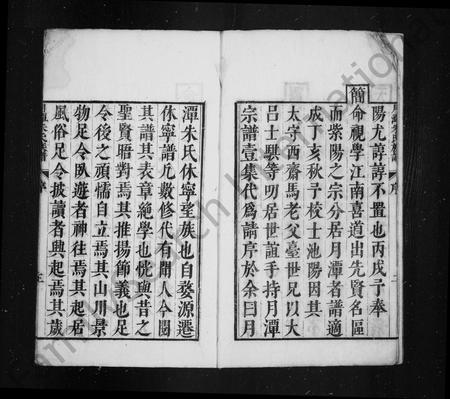 陽尤諄諄不置也丙戌子奉
簡命視學江南喜道出先賢名區
而紫陽之宗分居月潭者譜適
成丁亥秋子校士池陽因其
太守西齋馬老父臺世兄以大
呂士騏等叨居世誼手持月潭
宗譜壹集代為請序於余曰月
潭朱氏休寧望族也自婺源遷
休寧譜凡數修代有聞人今閱
其譜其表章絕學也恍與昔之
聖賢晤對焉其推揚節義也足
令後之頑懦自立焉其山川景
物足令臥遊者神往焉其起居
風俗足令披讀者興起焉其歲
序
序